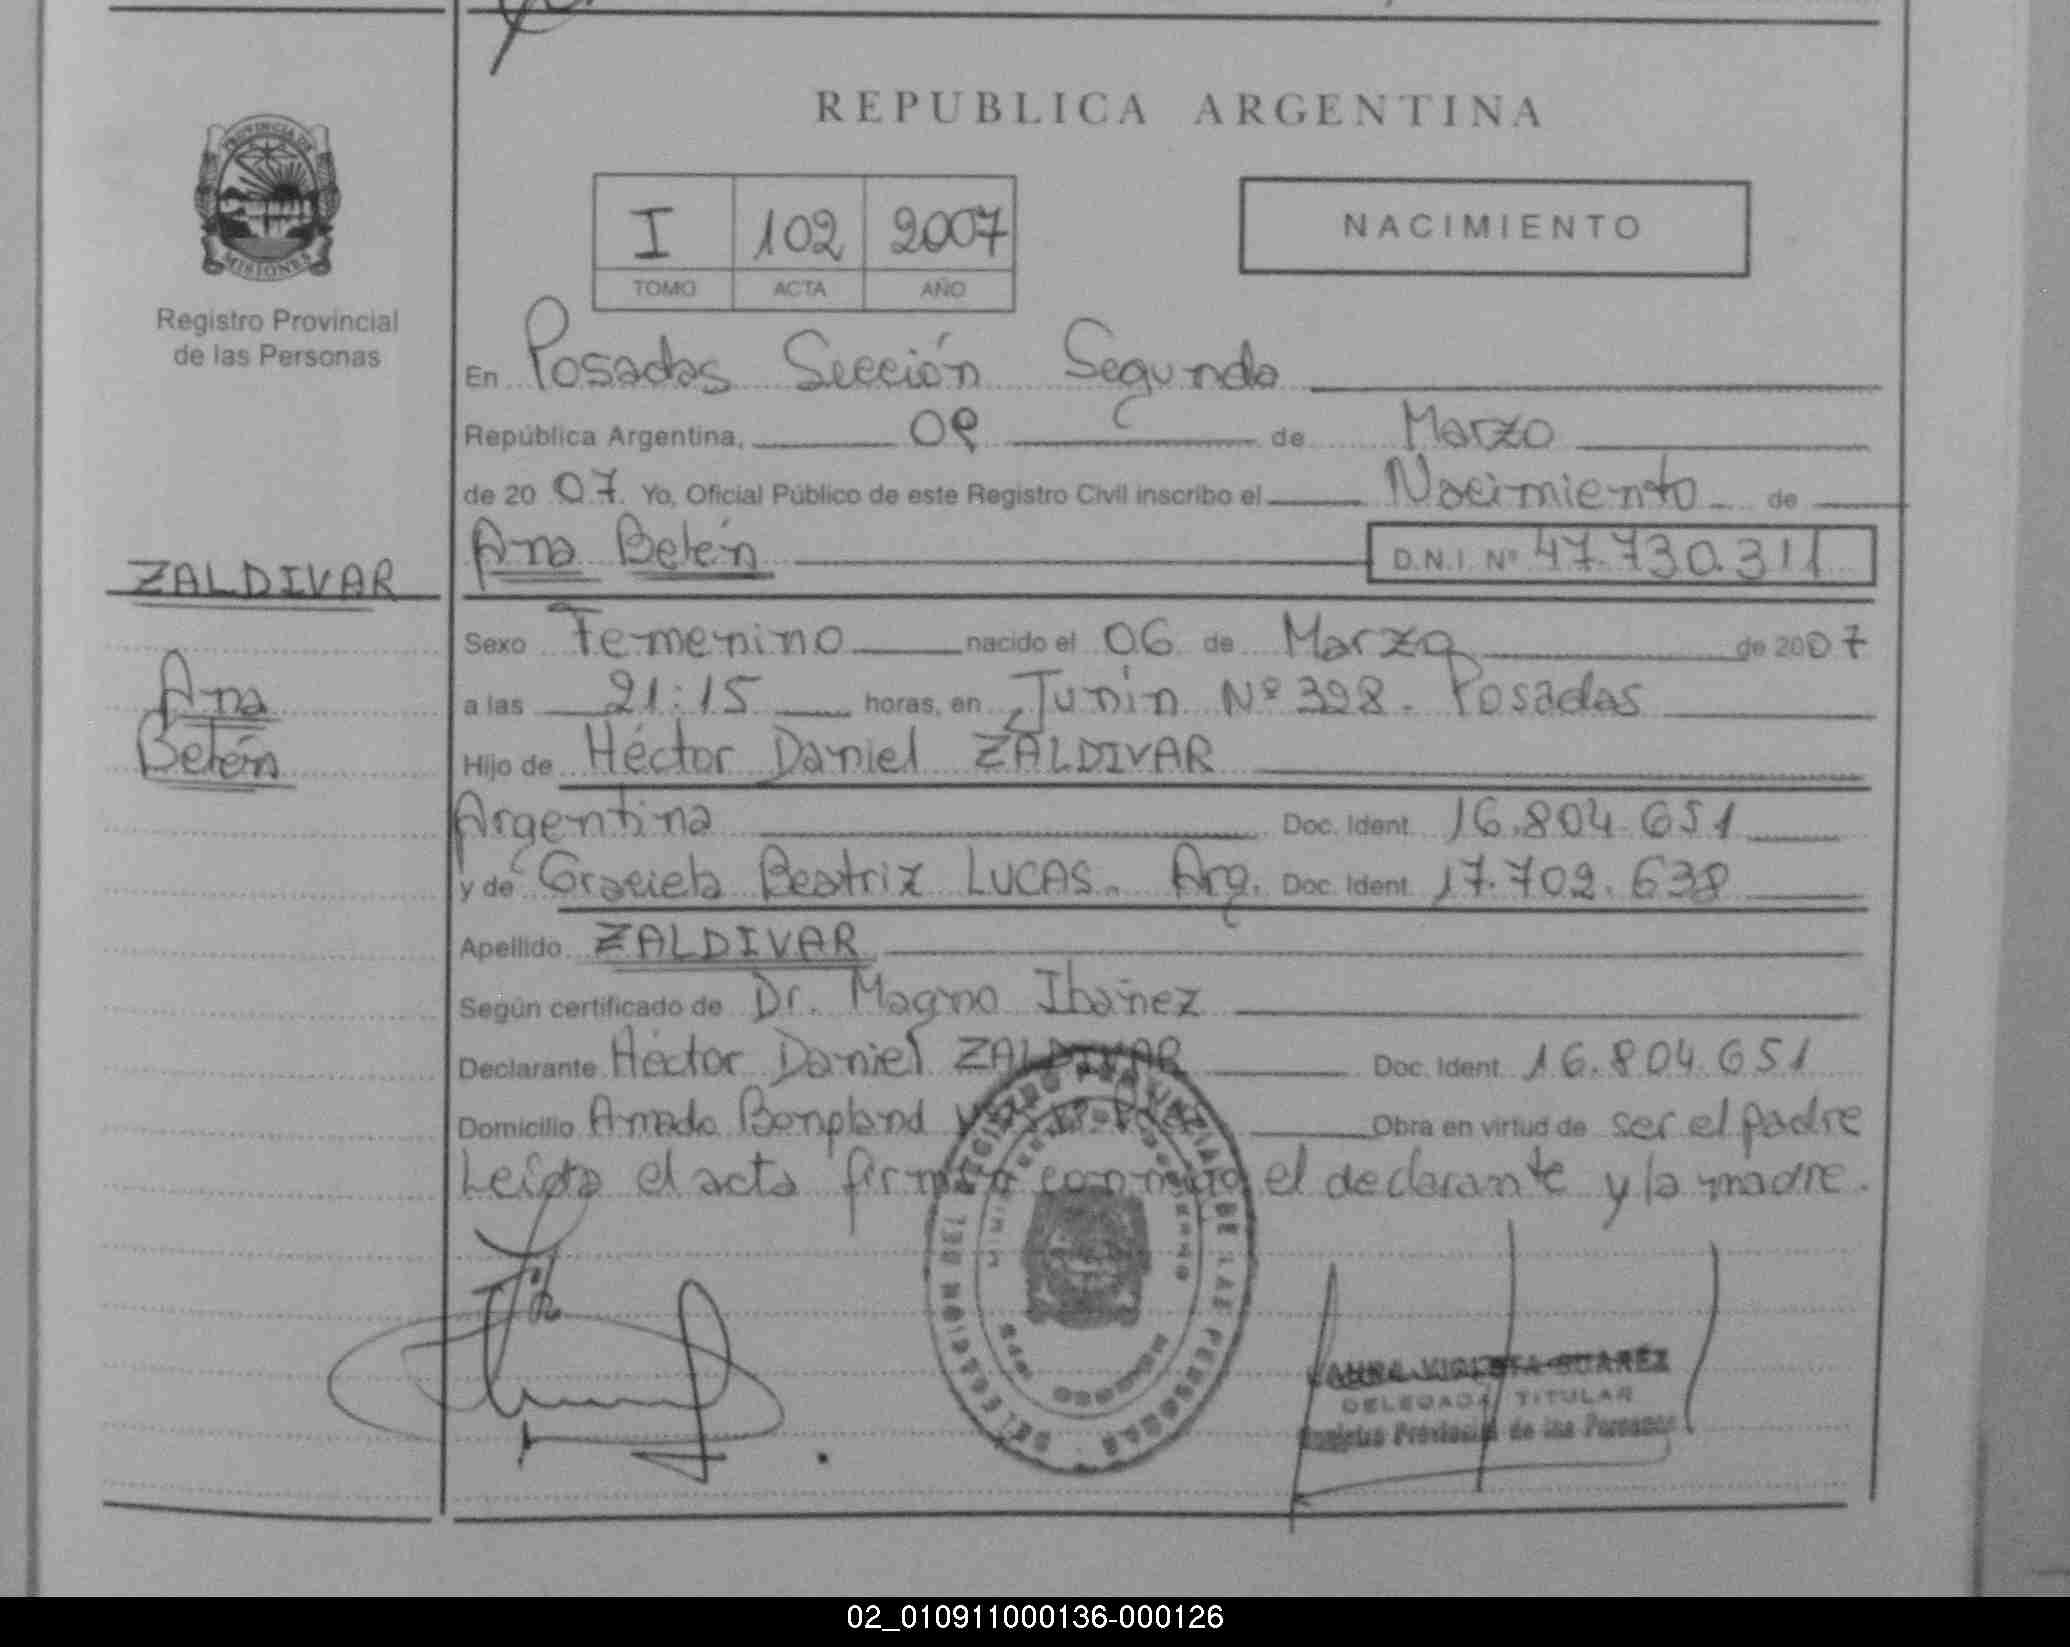 REPUBLICA ARGENTINA
PROVINCIA DE
MISIONES
Registro Provincial
de las Personas
I 102 2007
TOMO ACTA AÑO
NACIMIENTO
En Posadas Sección Segunda
República Argentina, 09 de Marzo
de 20 07. Yo, Oficial Público de este Registro Civil inscribo el Nacimiento de
Ana Belén D.N.I. Nº 47.730.311
ZALDIVAR
Ana
Belén
Sexo Femenino nacido el 06 de Marzo de 2007
a las 21:15 horas, en Junín Nº 328. Posadas
Hijo de Héctor Daniel ZALDIVAR
Argentina Doc. Ident. 16.804.651
y de Graciela Beatriz LUCAS. Arg. Doc. Ident. 17.702.638
Apellido ZALDIVAR
Según certificado de Dr. Magno Ibañez
Declarante Héctor Daniel ZALDIVAR Doc. Ident. 16.804.651
Domicilio Amado Bonpland Obra en virtud de ser el padre
Leída el acta firman conmigo el declarante y la madre.
REGISTRO PROVINCIAL DE LAS PERSONAS
SUAREZ
DELEGADA TITULAR
Registro Provincial de las Personas
02_010911000136-000126